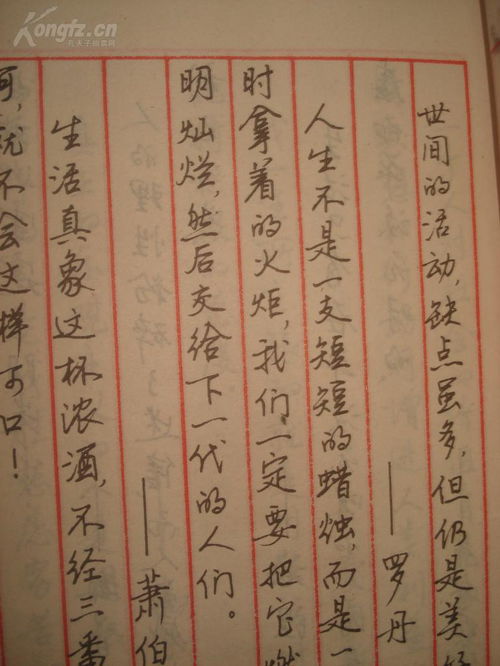 Kongfz.cn
孔夫子旧书网
世间的活动,缺点虽多,但仍是美
——罗丹
人生不是一支短短的蜡烛,而是一
时拿着的火炬,我们一定要把它燃
明灿烂,然后交给下一代的人们。
——萧伯
生活真象这杯浓酒,不经三番
就不会这样可口!